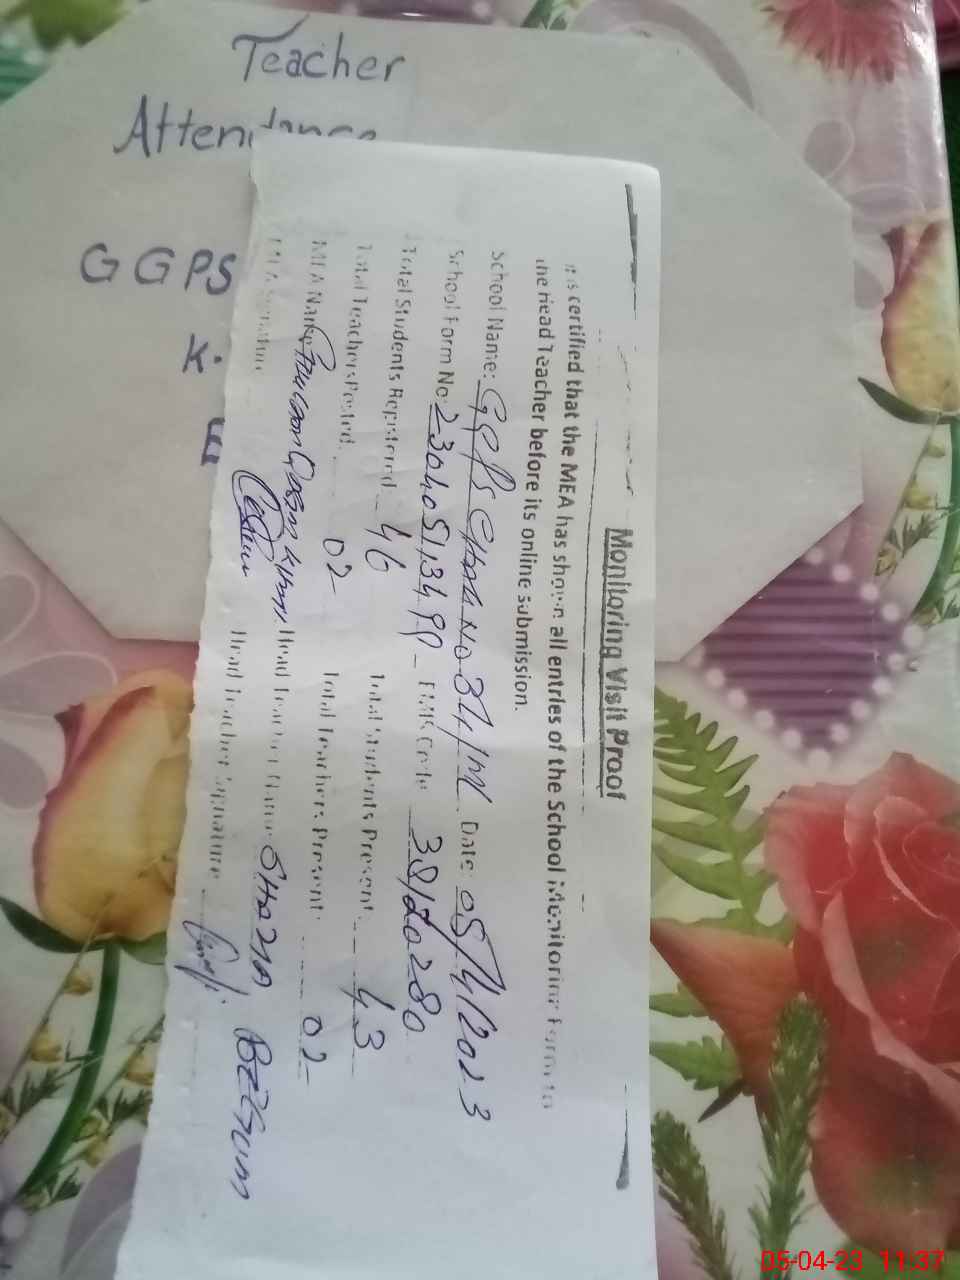 Teacher
Attendance
GGPS
K.
Monitoring Visit Proof
It is certified that the MEA has shown all entries of the School Monitoring Form to
the Head Teacher before its online submission.
School Name: GGPS CHAK No 34/M Date: 05/4/2023
School Form No: EMIS Code
Total Students Registered 46 Total Students Present 43
Total Teachers Posted 02 Total Teachers Present 02
MEA Name Head Teacher Name
MEA Signature Head Teacher Signature
05-04-23 11:37